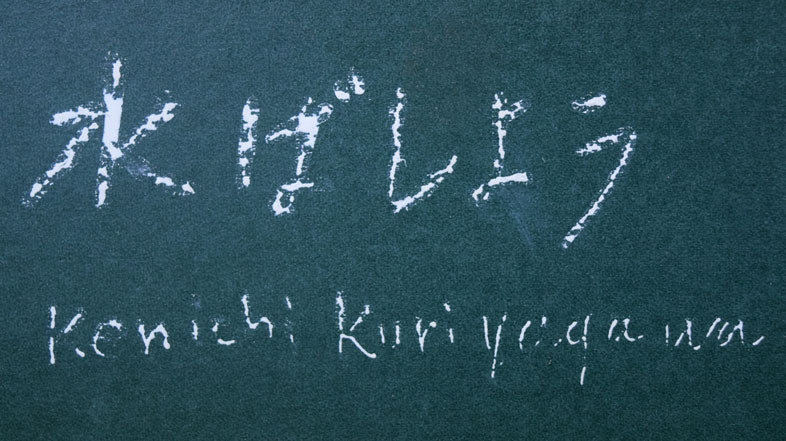 水ばしょう
Kenichi Kuriyagawa